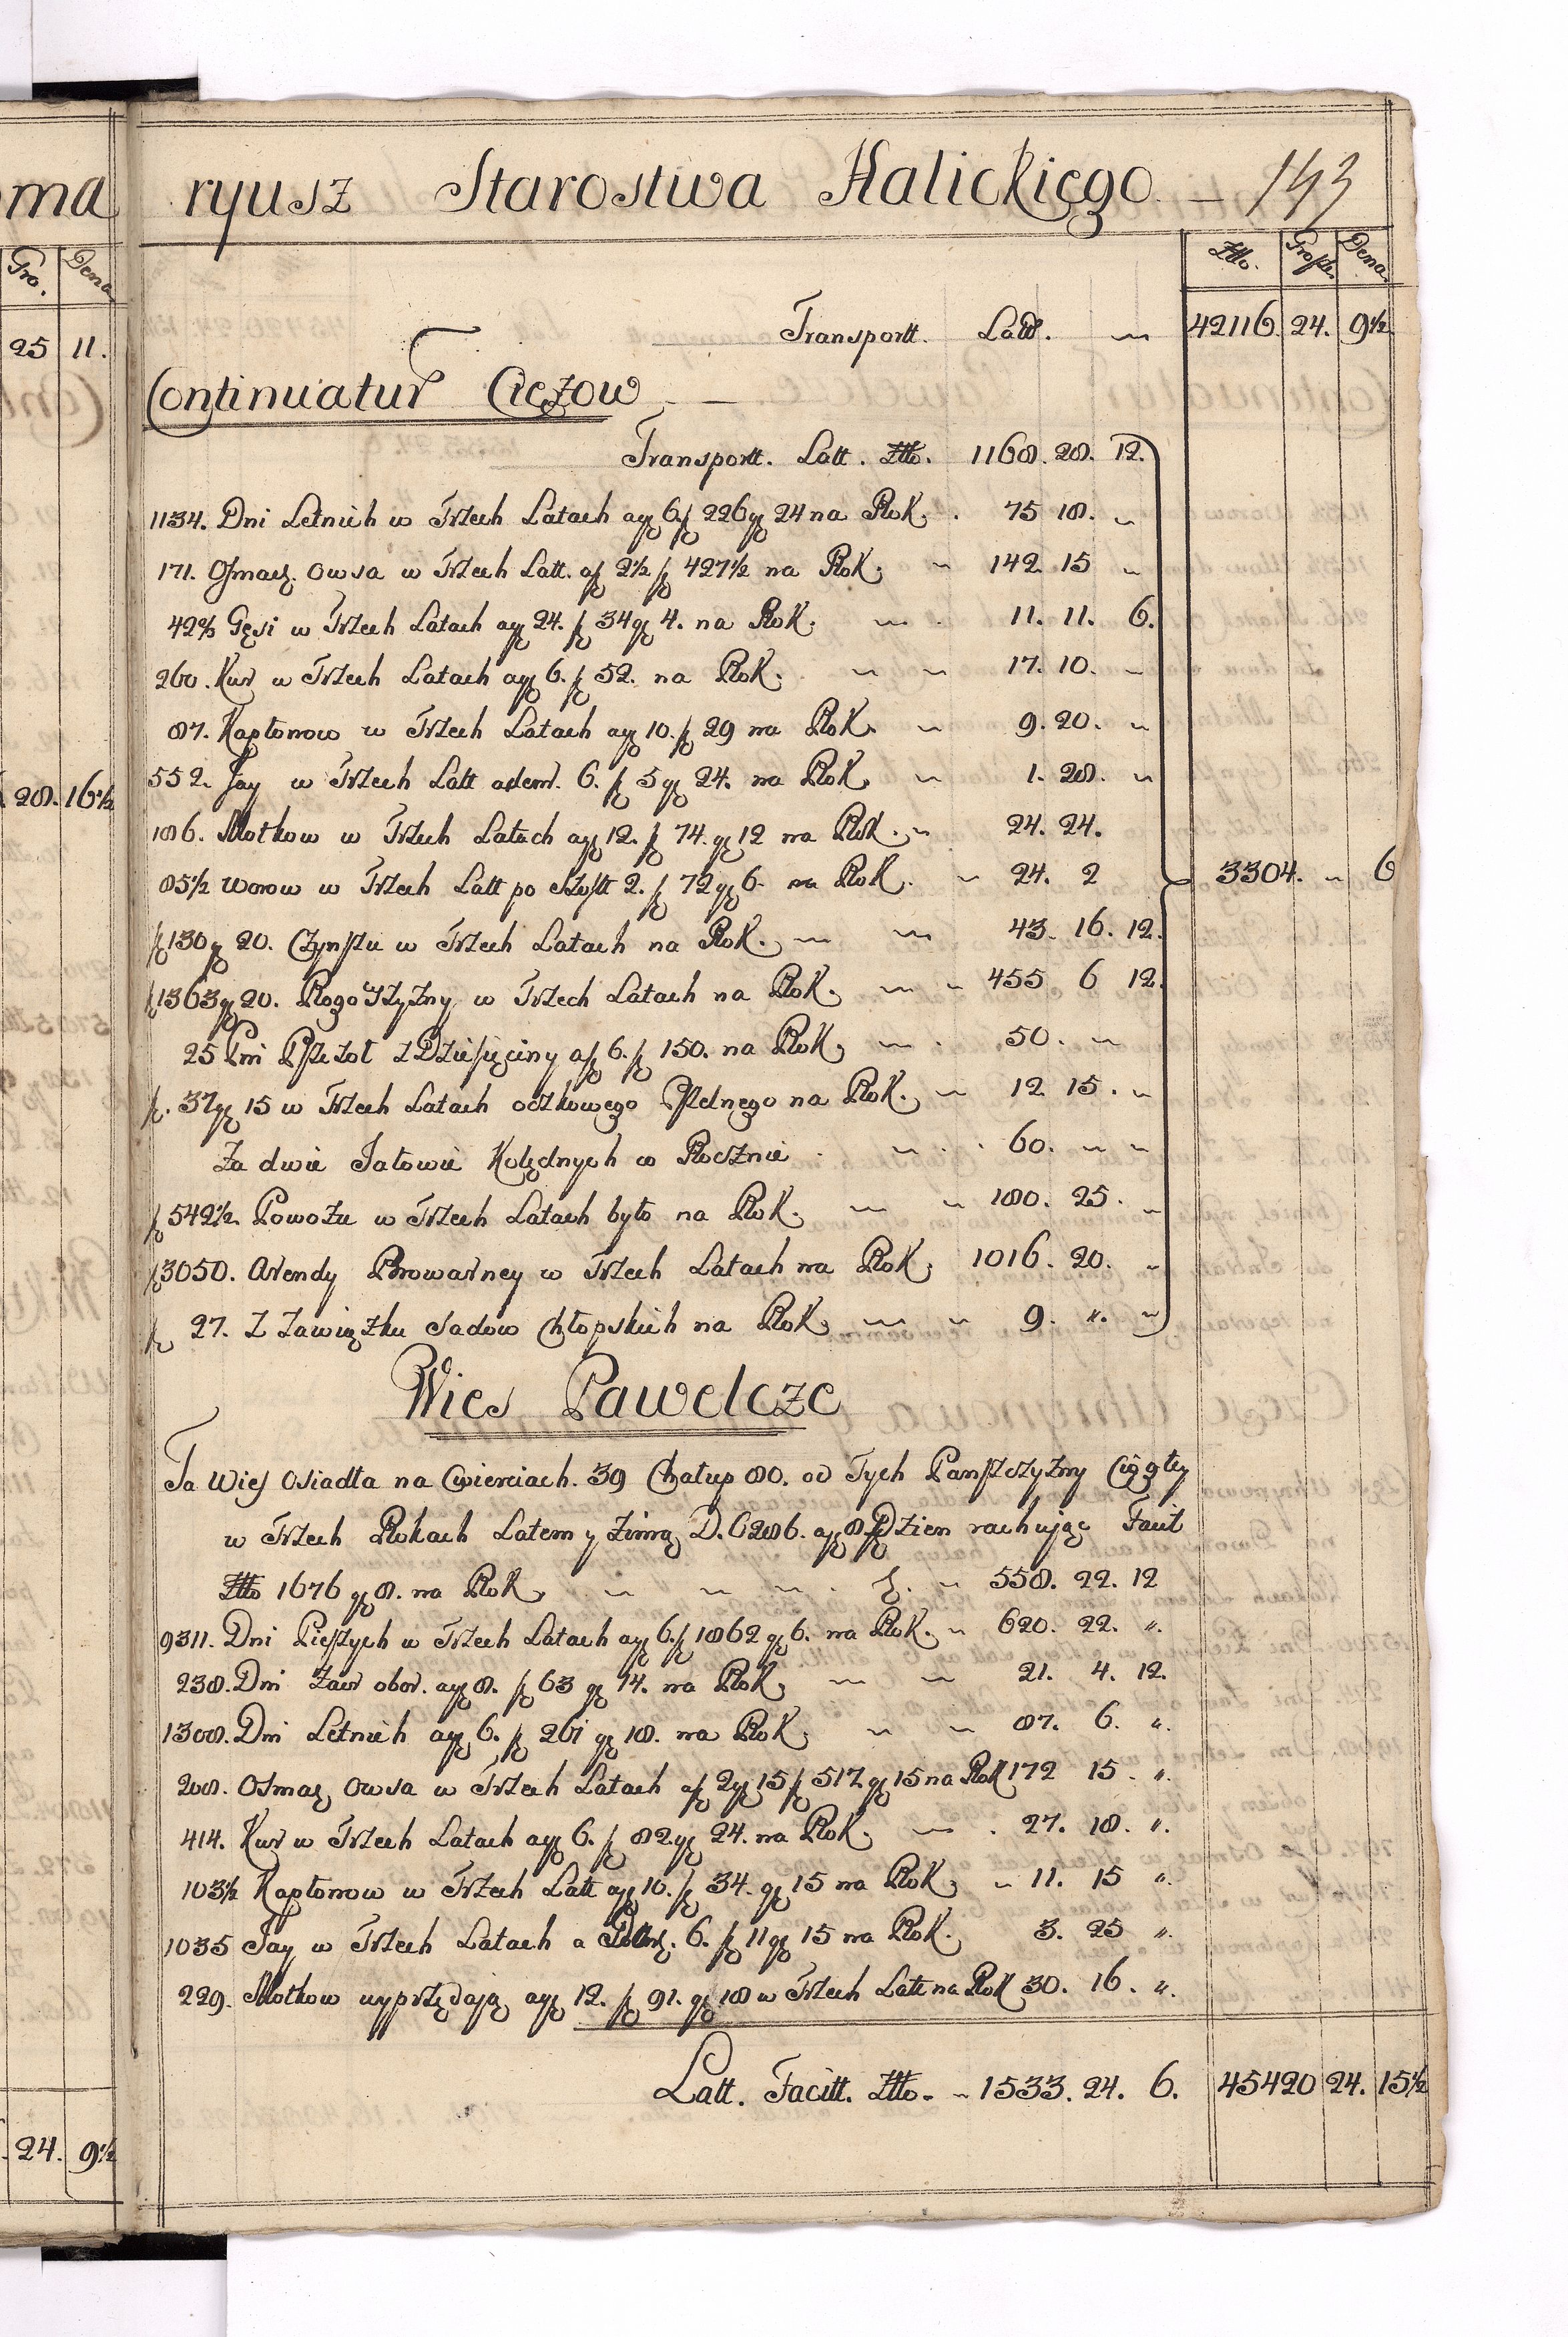 ma ryusz Starostwa Halickiego 143
Gro. Dena
Złło. Grosze. Dena
25 11.
Transportt. Latt. 42116. 24. 9½
Continuatur Ciężow
Transportt. Latt. Złło. 1168. 28. 12.
1134. Dni Letnich w Trzech Latach a gr 6 f 226 gr 24 na Rok. 75 18.
171. Osmacz. owsa w Trzech Latt. a f 2½ f 427½ na Rok. 142 15
42⅔ Gęsi w Trzech Latach a gr 24. f 34 gr 4. na Rok. 11. 11. 6.
260. Kur w Trzech Latach a gr 6. f 52. na Rok. 17. 10.
87. Kapłonow w Trzech Latach a gr 10. f 29 na Rok. 9. 20.
552. Jay w Trzech Latt a den. 6. f 5 gr 24. na Rok 1. 28.
28. 16½
186. Motkow w Trzech Latach a gr 12. f 74. gr 12 na Rok. 24. 24.
85½ worow w Trzech Latt po 2. f 72 gr 6. na Rok. 24. 2
3304. 6
f 130 gr 20. Czynszu w Trzech Latach na Rok. 43. 16. 12.
f 1363 gr 20. Rogowszyzny w Trzech Latach na Rok. 455 6 12.
25 Pni Pszczoł z Dziesięciny a f 6. f 150. na Rok, 50.
f. 37 gr 15 w Trzech Latach oczkowego Pszelnego na Rok. 12 15.
Za dwie Jałowic Kolędnych w Rocznie 60.
f 542½. Powozu w Trzech Latach było na Rok. 180. 25.
f 3050. Arendy Browarney w Trzech Latach na Rok, 1016. 20.
f 27. Z zawiązku sadow Chłopskich na Rok, 9. ".
Wies Pawelcze
Ta Wies osiadła na Cwierciach. 39 Chałup 80. od Tych Panszczyzny Ciągłey
w Trzech Rokach Latem y zimą D. 6286. a gr 8. Dzien rachuiąc Facit
Złło 1676 gr 8. na Rok, 558. 22. 12
9311. Dni Pieszych w Trzech Latach a gr 6. f 1862 gr 6. na Rok. 620. 22. ".
238. Dni zaw obor. a gr 8. f 63 gr 14. na Rok, 21. 4. 12.
1308. Dni Letnich a gr 6. f 261 gr 18. na Rok, 87. 6. ".
208. Osmacz owsa w Trzech Latach a f 2 gr 15 f 517 gr 15 na Rok 172 15. ".
414. Kur w Trzech Latach a gr 6. f 82 gr 24. na Rok, 27. 18. ".
103½ Kapłonow w Trzech Latt a gr 10. f 34. gr 15 na Rok, 11. 15 ".
1035 Jay w Trzech Latach a 6. f 11 gr 15 na Rok. 3. 25 ".
229. Motkow wyprzędają a gr 12. f 91. gr 18 w Trzech Latt na Rok 30. 16. ".
Latt. Facitt. Złło. 1533. 24. 6. 45420 24. 15½
24. 9½